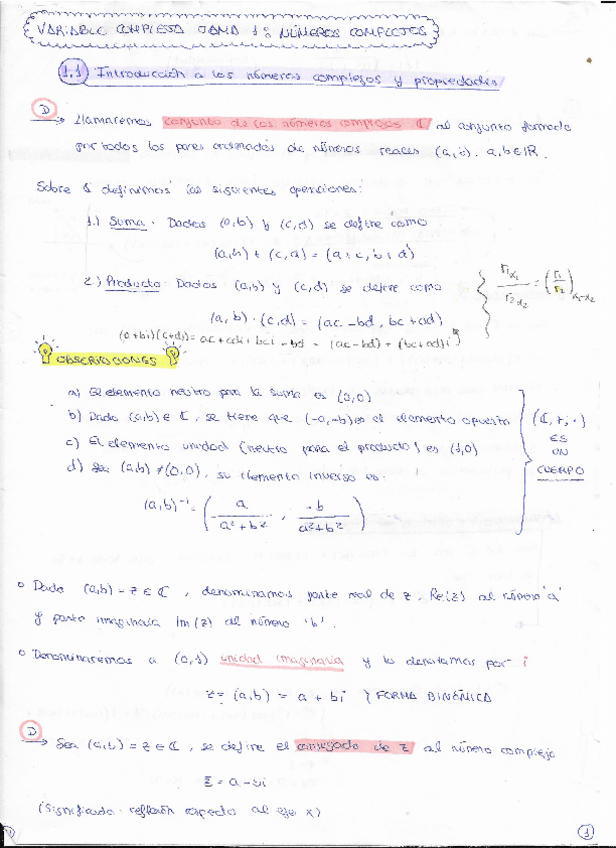 VARIABLE COMPLEJA TEMA 1: NÚMEROS COMPLEJOS
1.1 Introducción a los números complejos y propiedades
D
→ Llamaremos conjunto de los números complejos ℂ al conjunto formado
por todos los pares ordenados de números reales (a,b). a,b∈ℝ.
Sobre ℂ definimos las siguientes operaciones:
1.) Suma. Dados (a,b) y (c,d) se define como
(a,b) + (c,d) = (a+c, b+d)
2.) Producto. Dados (a,b) y (c,d) se define como
(a,b)·(c,d) = (ac-bd, bc+ad)
(a+bi)(c+di) = ac + adi + bci - bd = (ac-bd) + (bc+ad)i
r₁ α₁ / r₂ α₂ = (r₁/r₂) α₁-α₂
OBSERVACIONES
a) El elemento neutro para la suma es (0,0)
b) Dado (a,b)∈ℂ, se tiene que (-a,-b) es el elemento opuesto
c) El elemento unidad (neutro para el producto) es (1,0)
d) Sea (a,b)≠(0,0), su elemento inverso es:
(a,b)⁻¹ = ( a / a²+b² , -b / a²+b² )
(ℂ,+,·)
ES
UN
CUERPO
o Dado (a,b) = z∈ℂ, denominamos parte real de z, Re(z) al número 'a'
y parte imaginaria Im(z) al número 'b'.
o Denominaremos a (0,1) unidad imaginaria y lo denotamos por i
z = (a,b) = a + bi } FORMA BINÓMICA
D
→ Sea (a,b) = z∈ℂ, se define el conjugado de z al número complejo
z̄ = a - bi
(Significado: reflexión respecto al eje x)
1